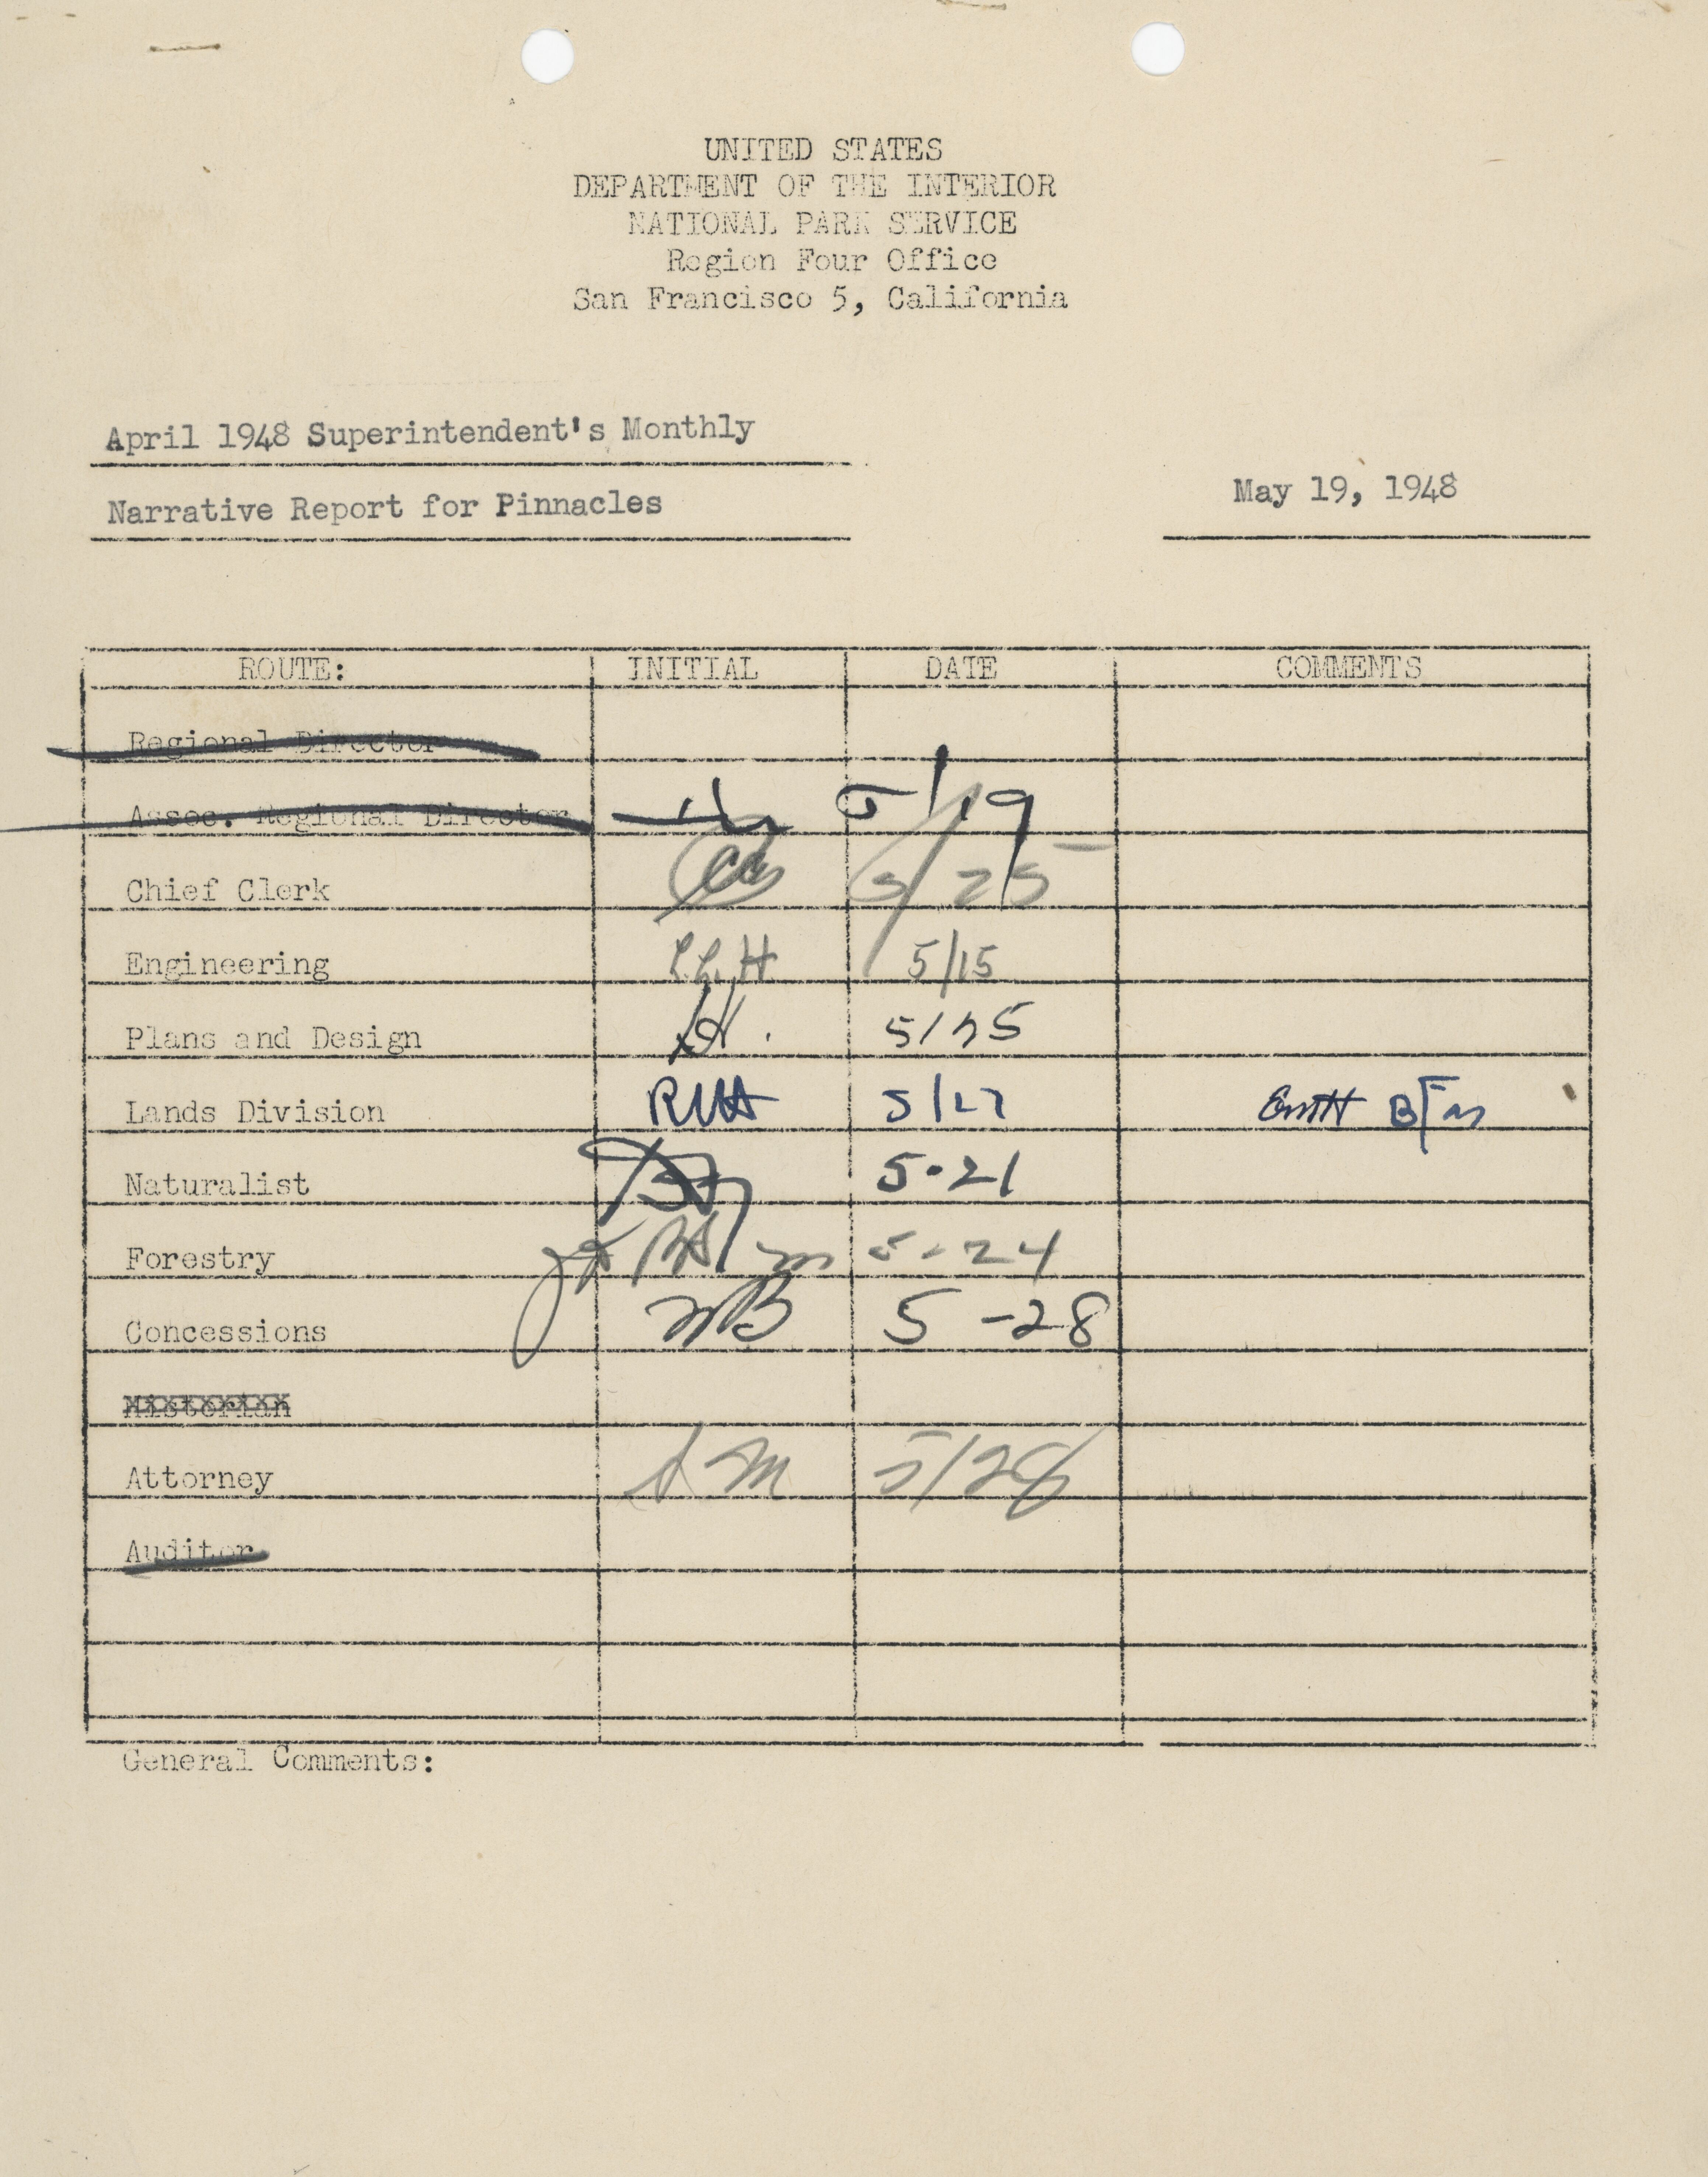 UNITED STATES
DEPARTMENT OF THE INTERIOR
NATIONAL PARK SERVICE
Region Four Office
San Francisco 5, California
April 1948 Superintendent's Monthly
Narrative Report for Pinnacles
May 19, 1948
ROUTE: INITIAL DATE COMMENTS
Regional Director
Assoc. Regional Director 5/19
Chief Clerk 5/25
Engineering 5/15
Plans and Design 5/25
Lands Division 5/27
Naturalist 5-21
Forestry 5-24
Concessions 5-28
Historian
Attorney 5/28
Auditor
General Comments: